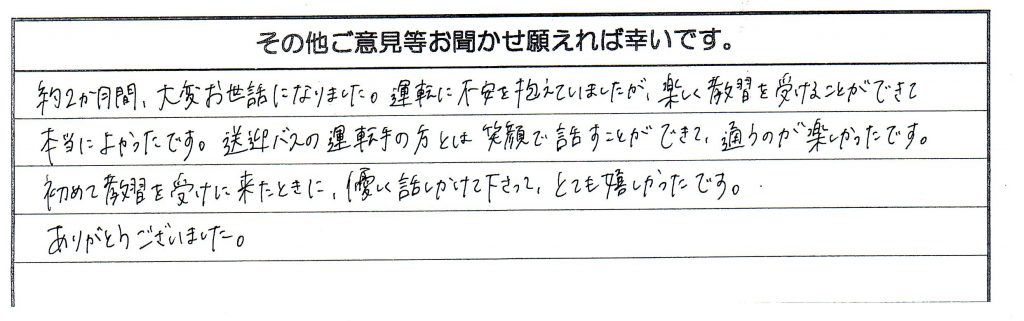 その他ご意見等お聞かせ願えれば幸いです。
約2か月間、大変お世話になりました。運転に不安を抱えていましたが、楽しく教習を受けることができて
本当によかったです。送迎バスの運転手の方とは笑顔で話すことができて、通うのが楽しかったです。
初めて教習を受けに来たときに、優しく話しかけて下さって、とても嬉しかったです。
ありがとうございました。